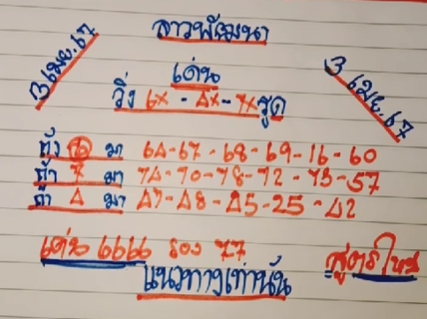 ลาวพัฒนา
3 เมย. 67
3 เมย. 67
เด่น
วิ่ง 6x - 4x - 7x รูด
ถ้า 6 มา 64-67-68-69-16-60
ถ้า 7 มา 74-70-78-72-73-57
ถ้า 4 มา 47-48-45-25-42
เด่น 6666 รอง 77
สูตรใหม่
แนวทางเท่านั้น